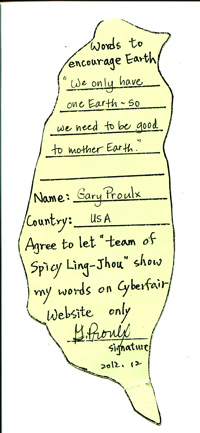 Words to
encourage Earth
"We only have
one Earth - so
we need to be good
to mother Earth."
Name: Gary Proulx
Country: USA
Agree to let "team of
Spicy Ling-Jhou" show
my words on Cyberfair
Website only
G. Proulx
signature
2012. 12